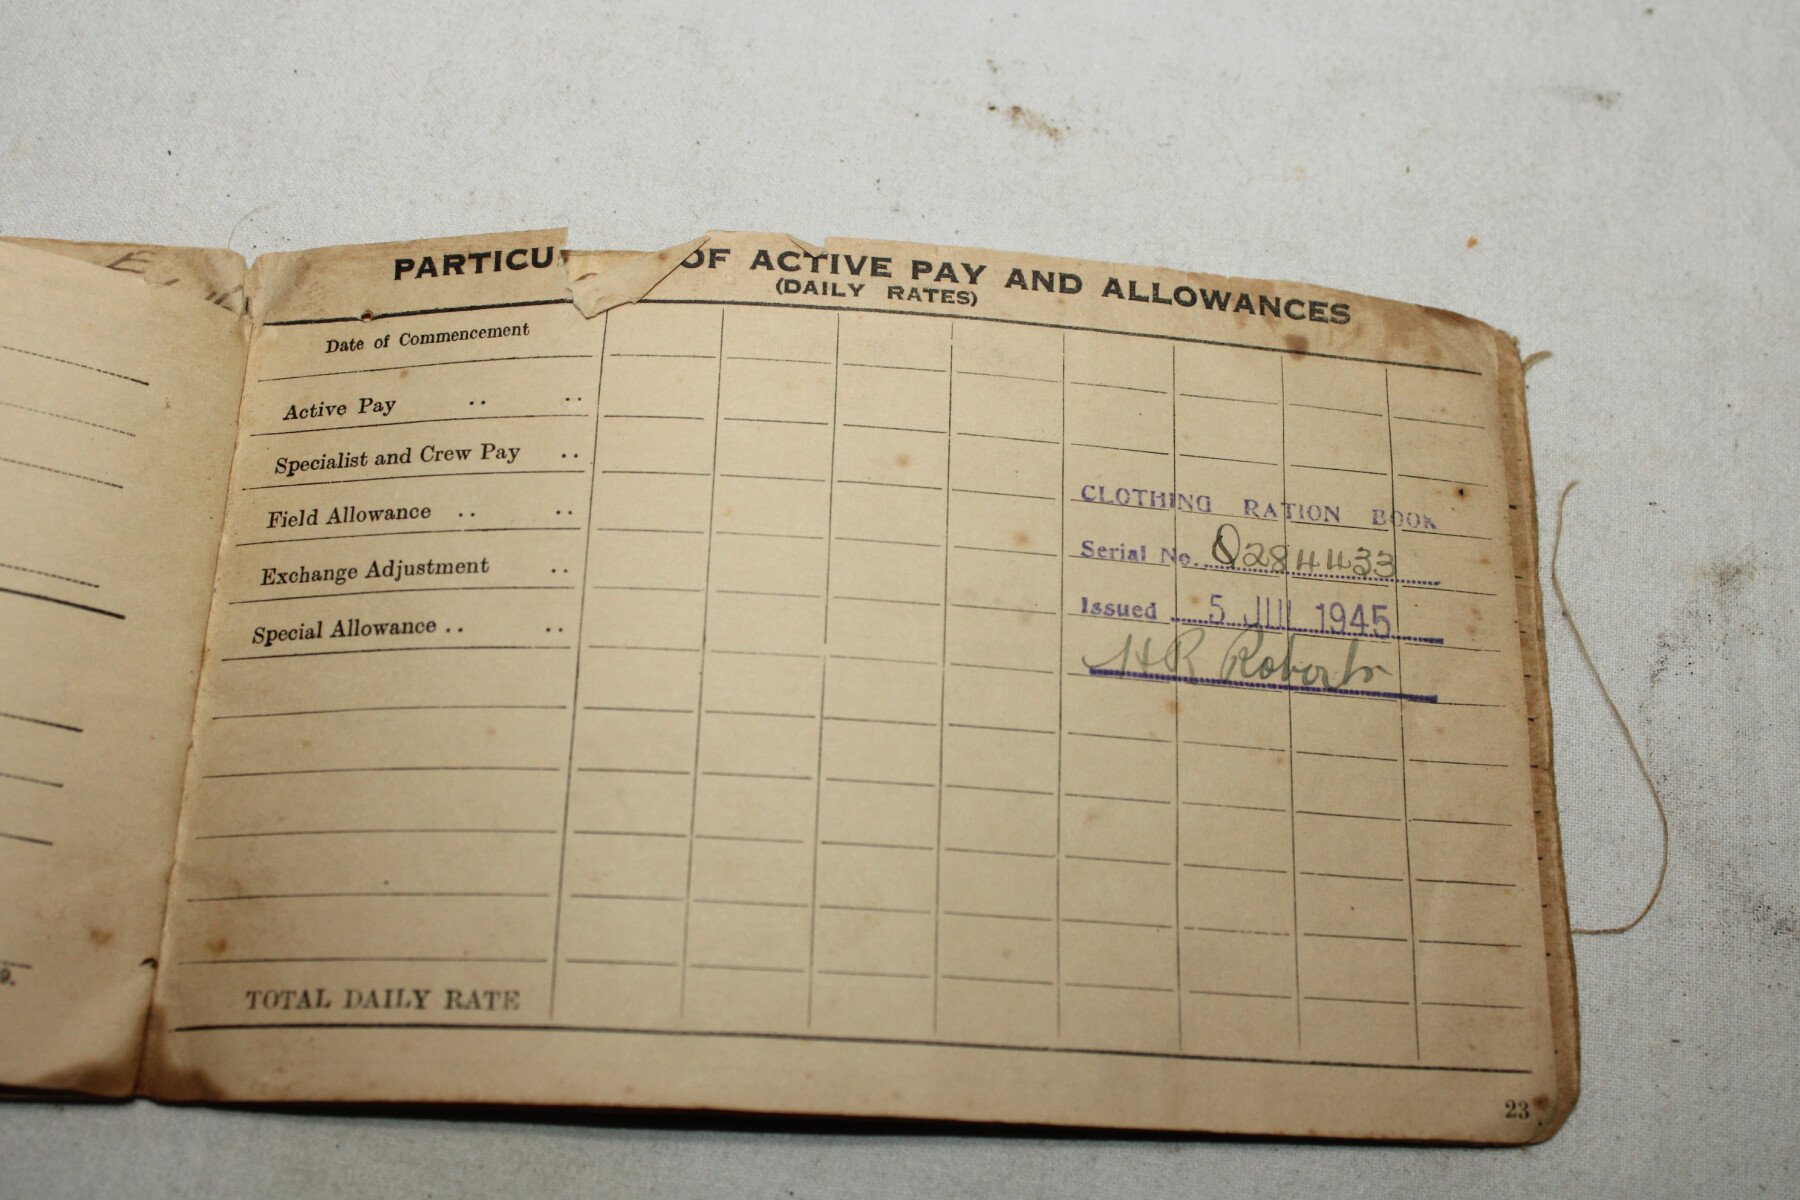 PARTICU OF ACTIVE PAY AND ALLOWANCES
(DAILY RATES)
Date of Commencement
Active Pay .. ..
Specialist and Crew Pay ..
Field Allowance .. ..
Exchange Adjustment ..
Special Allowance .. ..
TOTAL DAILY RATE
CLOTHING RATION BOOK
Serial No. Q284433
Issued 5 JUL 1945
H R Roberts
23
9.